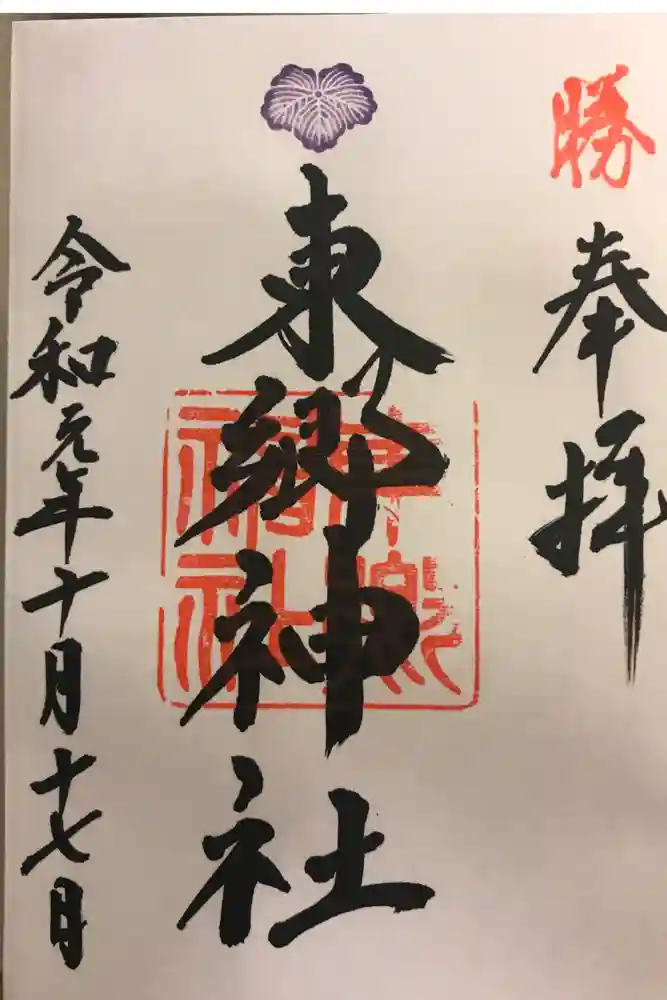 勝
奉拝
東郷神社
東郷神社
令和元年十月十七日